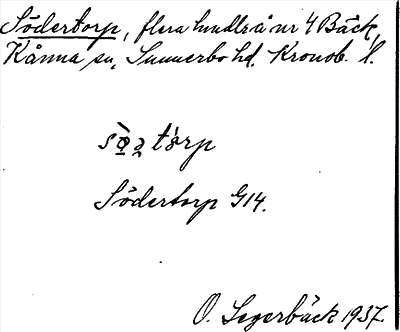 Södertorp, flera hmdlr å nr 4 Bäck,
Kånna sn, Sunnerbo hd. Kronob. l.
Södertorp G14.
O. Segerbäck 1937.